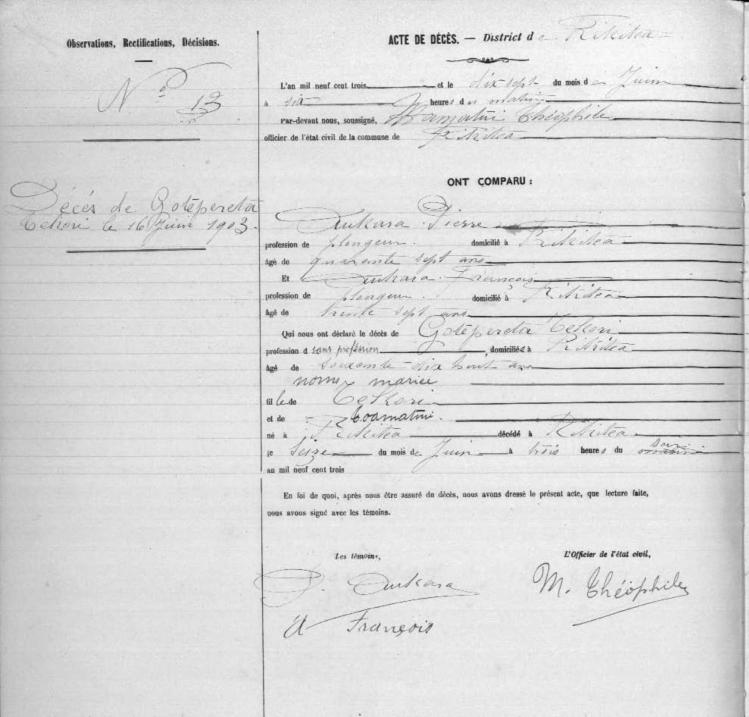 Observations, Rectifications, Décisions.
No 13
Décés de Gotepereta
Tekori le 16 Juin 1903.
ACTE DE DÉCÈS. — District de Rikitea
L'an mil neuf cent trois et le dix sept du mois de Juin
à six heures du matin
Par-devant nous, soussigné, Mamatui Théophile
officier de l'état civil de la commune de Rikitea
ONT COMPARU :
Aukara Pierre
profession de plongeur domicilié à Rikitea
âgé de quarante sept ans
Et Aukara François
profession de plongeur domicilié à Rikitea
âgé de trente sept ans
Qui nous ont déclaré le décès de Gotepereta Tekori
profession d sans profession, domiciliée à Rikitea
âgé de soixante dix huit ans
non mariée
fille de Teikori
et de Toamatui
né à Rikitea décédé à Rikitea
le seize du mois de Juin à trois heures du soir
au mil neuf cent trois
En foi de quoi, après nous être assuré du décès, nous avons dressé le présent acte, que lecture faite,
nous avons signé avec les témoins.
Les témoins,
P. Aukara
A François
L'Officier de l'état civil,
M. Théophile